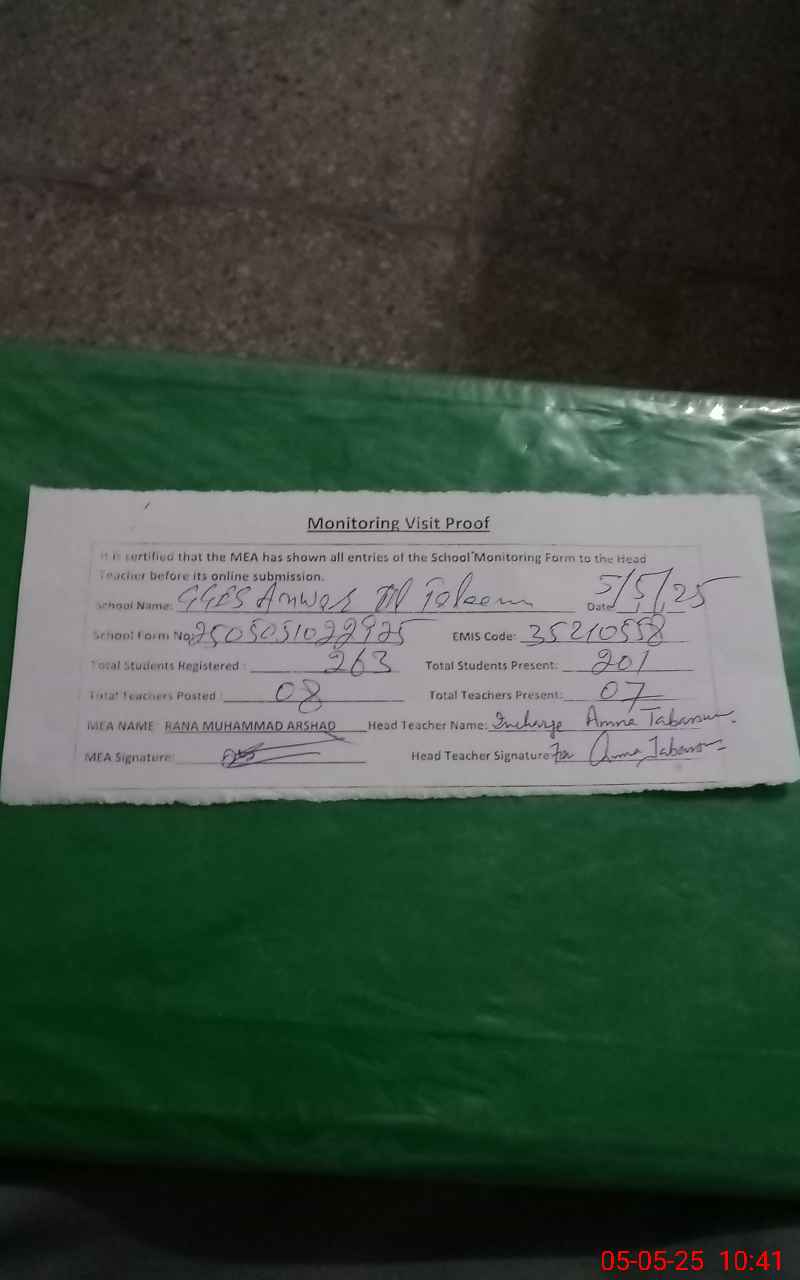 Monitoring Visit Proof
It is certified that the MEA has shown all entries of the School Monitoring Form to the Head
Teacher before its online submission.
School Name: GGES Anwar Ul Taleem Date 5/5/25
School Form No: 2505051022925 EMIS Code: 35210558
Total Students Registered : 263 Total Students Present: 201
Total Teachers Posted : 08 Total Teachers Present: 07
MEA NAME: RANA MUHAMMAD ARSHAD Head Teacher Name: Incharge Amna Tabassum
MEA Signature: Head Teacher Signature For Amna Tabassum
05-05-25 10:41